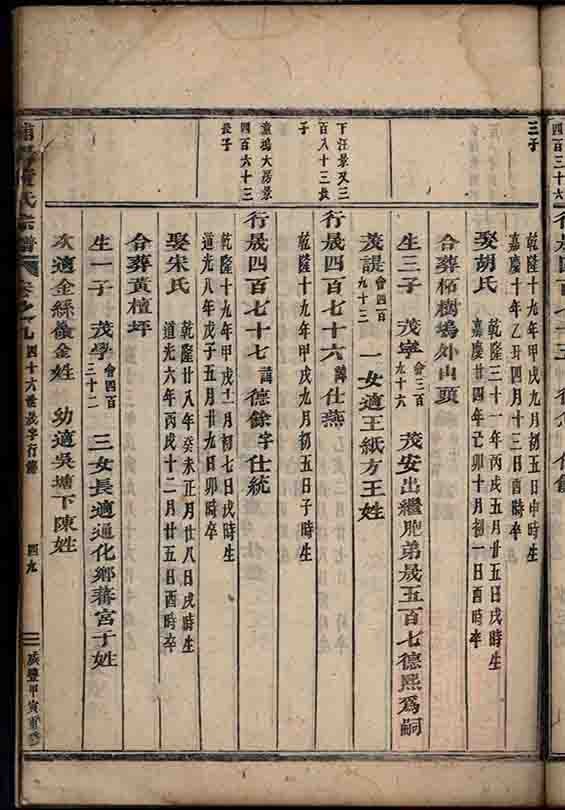 四百三十六
三子
乾隆十九年甲戌九月初五日申時生
嘉慶十年乙丑四月十三日酉時卒
娶胡氏
乾隆三十一年丙戌五月廿五日戌時生
嘉慶廿四年己卯十月初一日酉時卒
合葬栢樹塢外山頭
生三子 茂寧 會三百九十六 茂安出繼胞弟晟五百七德熙爲嗣
茂諟 會四百九十三 一女適王紙方王姓
下汪景又三
百八十三長
子
行晟四百七十六 諱仕燕
乾隆十九年甲戌九月初五日子時生
童塢大房景
四百六十三
長子
行晟四百七十七 諱德餘字仕統
乾隆十九年甲戌十一月初七日戌時生
道光八年戊子五月廿九日卯時卒
娶宋氏
乾隆廿八年癸未正月廿八日戌時生
道光六年丙戌十二月廿五日酉時卒
合葬黃檀坪
生一子 茂學 會四百三十二 三女長適通化鄉蕃宮于姓
次適金絲儉金姓 幼適吳塘下陳姓
氏宗譜 卷之九 四十六世晟字行錄 四九 咸豐甲寅重修